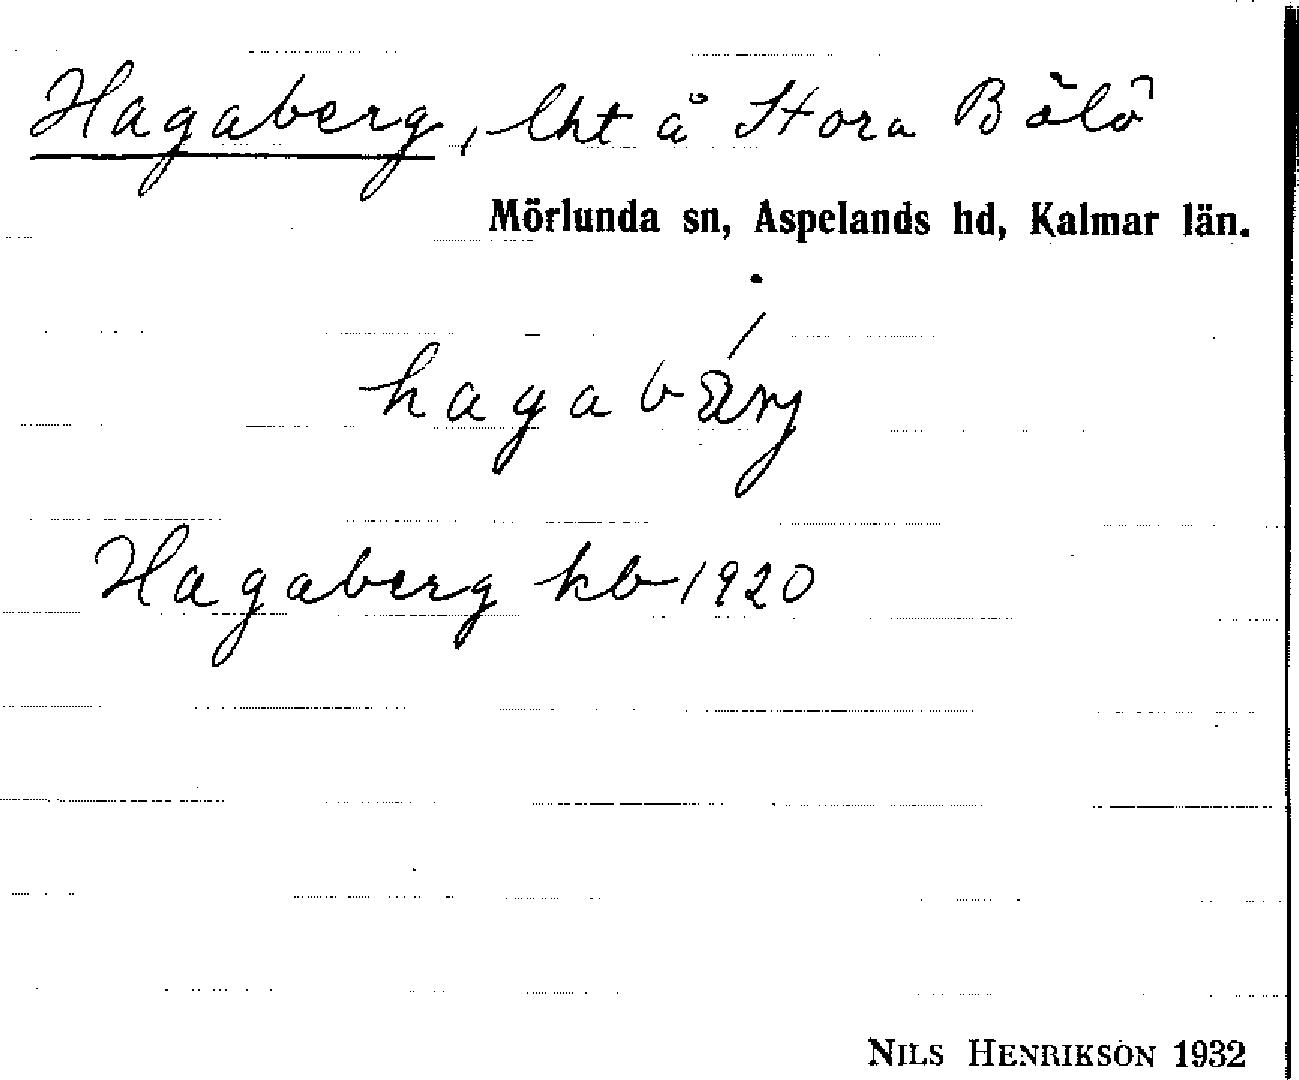 Hagaberg, lht å Stora Bölö
Mörlunda sn, Aspelands hd, Kalmar län.
hagabärj
Hagaberg kb 1920
NILS HENRIKSON 1932